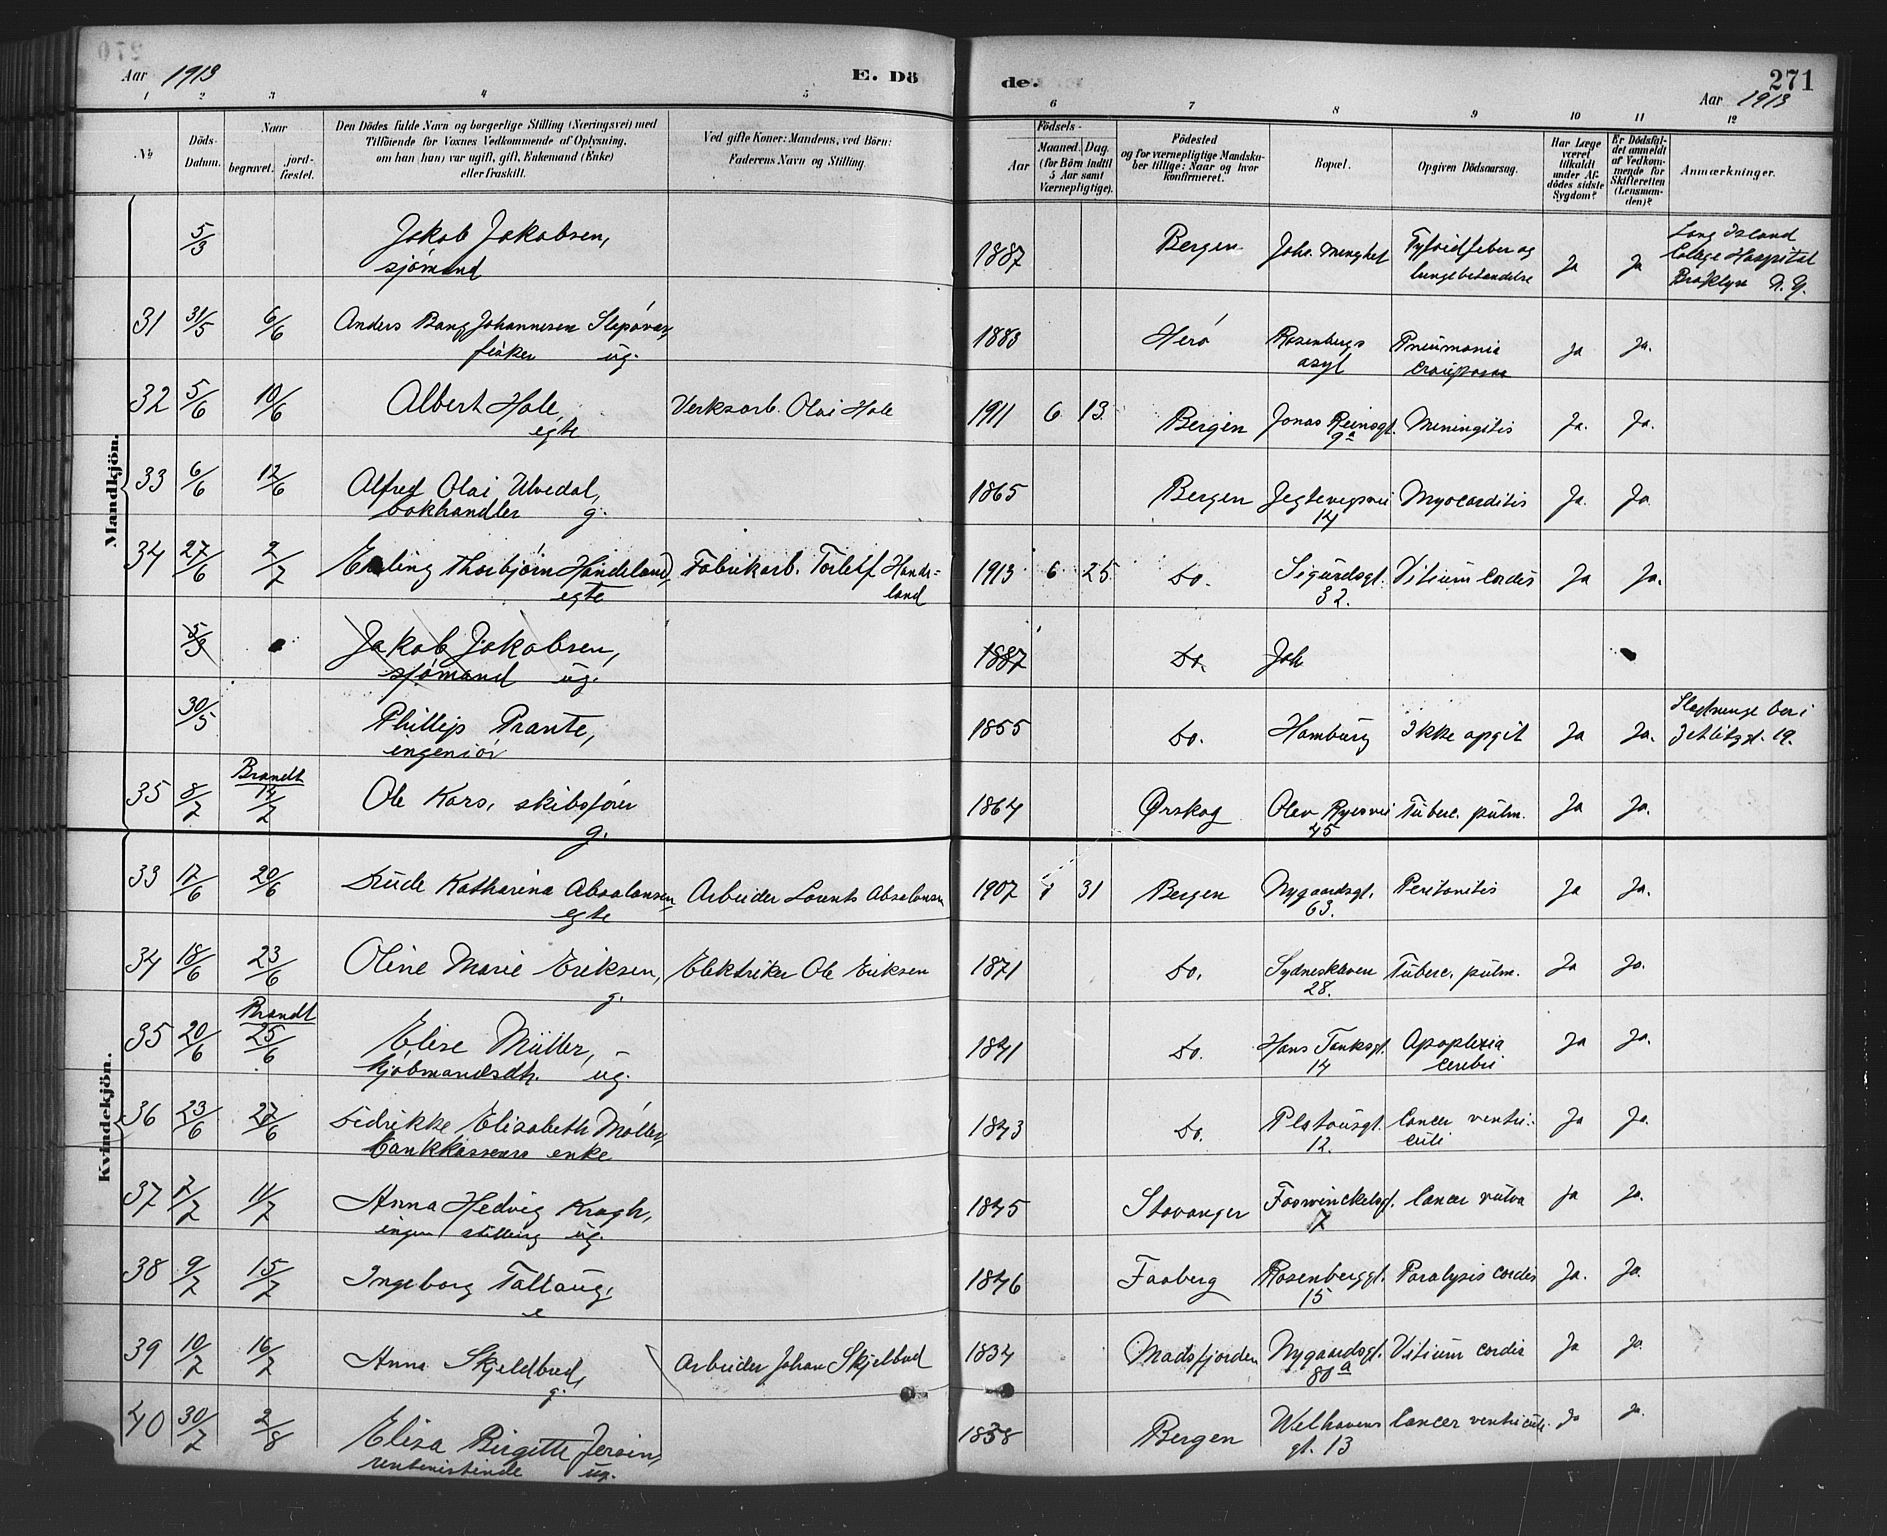 Aar 1913 E. Dö
de. 271
Aar 1913
1 2 3 4 5 6 7 8 9 10 11 12
No
Döds-Datum.
Naar
begravet. jord-fæstet.
Den Dödes fulde Navn og borgerlige Stilling (Næringsvei) med
Tilföiende for Voxnes Vedkommende af Oplysning,
om han (hun) var ugift, gift, Enkemand (Enke)
eller fraskilt.
Ved gifte Koner: Mandens, ved Börn:
Faderens Navn og Stilling.
Födsels-
Aar
Maaned. Dag.
(for Börn indtil
5 Aar samt
Værnepligtige).
Födested
og for værnepligtige Mandska-
ber tillige: Naar og hvor
konfirmeret.
Bopæl.
Opgiven Dödsaarsag.
Har Læge
været
tilkaldt
under Af-
dödes sidste
Sygdom?
Er Dödsfal-
det anmeldt
af Vedkom-
mende for
Skifteretten
(Lensman-
den)?
Anmærkninger.
Mandkjön.
5/3 Jakob Jakobsen, sjömand 1887 Bergen Johs. Tyfoidfeber og Ja Ja Long Island Hospital Brooklyn N. Y.
31 31/5 6/6 Anders Bang Johannesen fisker ug. 1883 Herö Rosenbergs asyl Pneumonia crouposa Ja Ja.
32 5/6 10/6 Albert Hole, egte Verksarb. Olai Hole 1911 6 13. Bergen Jonas Reinsgt. 9a Meningitis Ja. Ja.
33 6/6 12/6 Alfred Olai Ulvedal, bokhandler g. 1865 Bergen 14 Myocarditis Ja. Ja
34 27/6 2/7 Erling Thorbjörn Handeland, egte Fabrikarb. Torleif Hande=land 1913 6 25. Do. Sigurdsgt. 32. Vitium cordis Ja Ja.
5/3 Jakob Jakobsen, sjömand ug. 1887 Do. Joh
30/5 Phillip Prante, ingeniör 1855 Do. Hamburg Ikke opgit Ja Ja. 19.
35 8/7 Brandt 14/7 Ole Kors, skibsförer g. 1864 Ørskog Olav Ryesvei 45 Tuberc. pulm. Ja Ja.
Kvindekjön.
33 17/6 20/6 Katharina Absalonsen, egte Arbeider Lorents Absalonsen 1907 1 31 Bergen Nygaardsgt. 63. Peritonitis Ja Ja.
34 18/6 23/6 Oline Marie Eriksen, g. Elektriker Ole Eriksen 1871 Do. Sydneskleven 28. Tuberc. pulm. Ja Ja.
35 20/6 Brandt 25/6 Elise Müller, kjöbmandsdtr. ug. 1841 Do. Hans Tanksgt. 14 Apoplexia cerebri Ja Ja.
36 23/6 27/6 Didrikke Elisabeth Möller, enke 1843 Do. 12. Cancer ventriculi Ja Ja.
37 7/7 11/7 Anna Hedvig Kragh, ingen stilling ug. 1845 Stavanger Fosswinckelsgt. 7 Cancer vulva Ja Ja.
38 9/7 15/7 Ingeborg Taltaug, e 1846 Faaberg Rosenberggt. 15 Paralysis cordis Ja. Ja.
39 10/7 16/7 Anna Skjeldbred, g. Arbeider Johan Skjelbred 1834 Nygaardsgt. 80a Vitium cordis Ja Ja.
40 30/7 2/8 Elisa Birgitte Jersin, rentenistinde ug. 1838 Bergen Welhavens gt. 13 Cancer ventriculi Ja Ja.